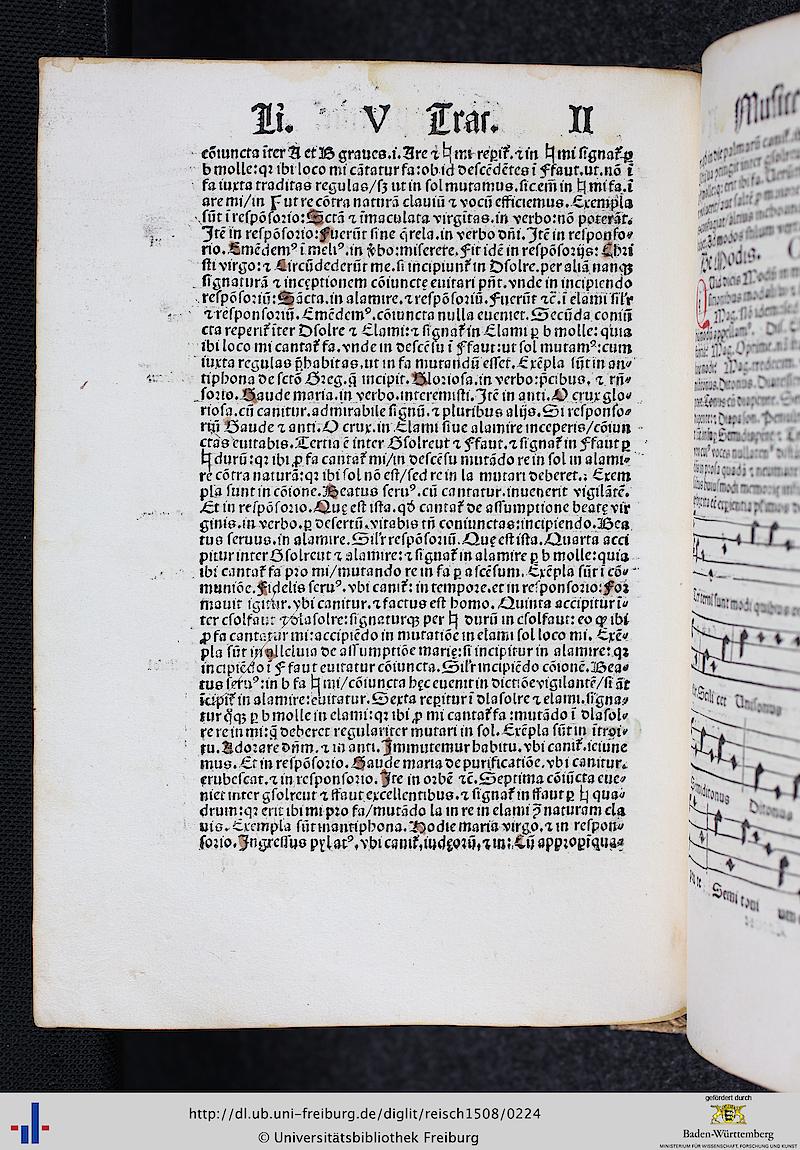 Li. V Trac. II
cōiuncta īter A et B graues.i. Are ⁊ ♮ mi reperit᷑.⁊ in ♮ mi signat᷑ ꝑ
b molle:qꝛ ibi loco mi cātatur fa:ob id descēdētes ī Ffaut.ut.nō ī
fa iuxta traditas regulas/sꝫ ut in sol mutamus.sicem̄ in ♮ mi fa.ī
are mi/in Γ ut re cōtra naturā clauiū ⁊ vocū efficiemus. Exempla
sūt ī respōsorio:Sctā ⁊ īmaculata virgītas.in verbo:nō poterāt.
Itē in respōsorio:Fuerūt sine q̄rela.in verbo dn̄i. Itē in responso-
rio. Emēdemꝰ ī meliꝰ.in ꝟbo:miserere. Fit idē in respōsorijs: Chri
sti virgo:⁊ Circūdederūt me.si incipiunt᷑ in Dsolre.per aliā nanqꝫ
signaturā ⁊ inceptionem cōiunctę euitari pn̄t.vnde in incipiendo
respōsoriū:Sācta.in alamire.⁊ respōsoriū. Fuerūt ⁊c̄.ī elami sil'r
⁊ responsoriū. Emēdemꝰ.cōiuncta nulla eueniet. Secūda coniū
cta reperit᷑ īter Dsolre ⁊ Elami:⁊ signat᷑ in Elami ꝑ b molle: quia
ibi loco mi cantat᷑ fa.vnde in descēsu ī Ffaut:ut sol mutamꝰ:cum
iuxta regulas p̄habitas.ut in fa mutandū esset. Exēpla sūt in an-
tiphona de sctō Greg.q̄ incipit. Gloriosa.in verbo:p̄cibus. ⁊ rn̄-
sorio. Gaude maria.in verbo.interemisti. Itē in anti. O crux glo-
riosa.cū canitur.admirabile signū.⁊ pluribus alijs. Si responso-
riū Gaude ⁊ anti. O crux.in Elami siue alamire inceperis/cōiun
ctas euitabis. Tertia ē inter Gsolreut ⁊ Ffaut.⁊ signat᷑ in Ffaut ꝑ
♮ durū:qꝛ ibi ꝓ fa cantat᷑ mi/in descēsu mutādo re in sol in alami-
re cōtra naturā:qꝛ ibi sol nō est/sed re in la mutari deberet.: Exem
pla sunt in cōione. Beatus seruꝰ.cū cantatur.inuenerit vigilātē.
Et in respōsorio. Quę est ista.qd̓ cantat᷑ de assumptione beatę vir
ginis.in verbo.ꝑ desertū.vitabis tn̄ coniunctas:incipiendo. Bea
tus seruus.in alamire. Sil'r respōsoriū. Quę est ista. Quarta acci
pitur inter Gsolreut ⁊ alamire:⁊ signat᷑ in alamire ꝑ b molle:quia
ibi cantat᷑ fa pro mi/mutando re in fa ꝑ ascēsum. Exēpla sūt ī cō-
muniōe. Fidelis seruꝰ.vbi canit᷑: in tempore.et in responsorio:For
mauit igitur.vbi canitur.⁊ factus est homo. Quinta accipitur ī-
ter csolfaut ⁊ dlasolre:signaturqꝫ per ♮ durū in csolfaut: eo ꝙ ibi
ꝓ fa cantatur mi:accipiēdo in mutatiōe in elami sol loco mi. Exē-
pla sūt in alleluia de assumptiōe marię:si incipitur in alamire: qꝛ
incipiēdo ī Ffaut euitatur cōiuncta. Sil'r incipiēdo cōionē. Bea-
tus seruꝰ:in b fa ♮ mi/cōiuncta hęc euenit in dictiōe vigilantē/si āt
īcipit᷑ in alamire:euitatur. Sexta reperitur ī dlasolre ⁊ elami.signa-
tur q̄qꝫ ꝑ b molle in elami:qꝛ ibi ꝓ mi cantat᷑ fa :mutādo ī dlasol-
re re in mi:q̄ deberet regulariter mutari in sol. Exēpla sūt in ītroi-
tu. Adorare dn̄m.⁊ in anti. Immutemur habitu.vbi canit᷑.ieiune
mus. Et in respōsorio. Gaude maria de purificatiōe.vbi canitur.
erubescat.⁊ in responsorio. Ite in orbē ⁊c̄. Septima cōiūcta eue-
niet inter gsolreut ⁊ ffaut excellentibus.⁊ signat᷑ in ffaut ꝑ ♮ qua-
drum:qꝛ erit ibi mi pro fa/mutādo la in re in elami p̄ naturam cla
uis. Exempla sūt in antiphona. Hodie maria virgo.⁊ in respon-
sorio. Ingressus pylatꝰ.vbi canit᷑,iudęorū,⁊ in: Cū appropīqua-
Musice
De Modis.
Unisonus
Semiditonus Ditonus
Semi toni
http://dl.ub.uni-freiburg.de/diglit/reisch1508/0224
© Universitätsbibliothek Freiburg
gefördert durch
Baden-Württemberg
MINISTERIUM FÜR WISSENSCHAFT, FORSCHUNG UND KUNST